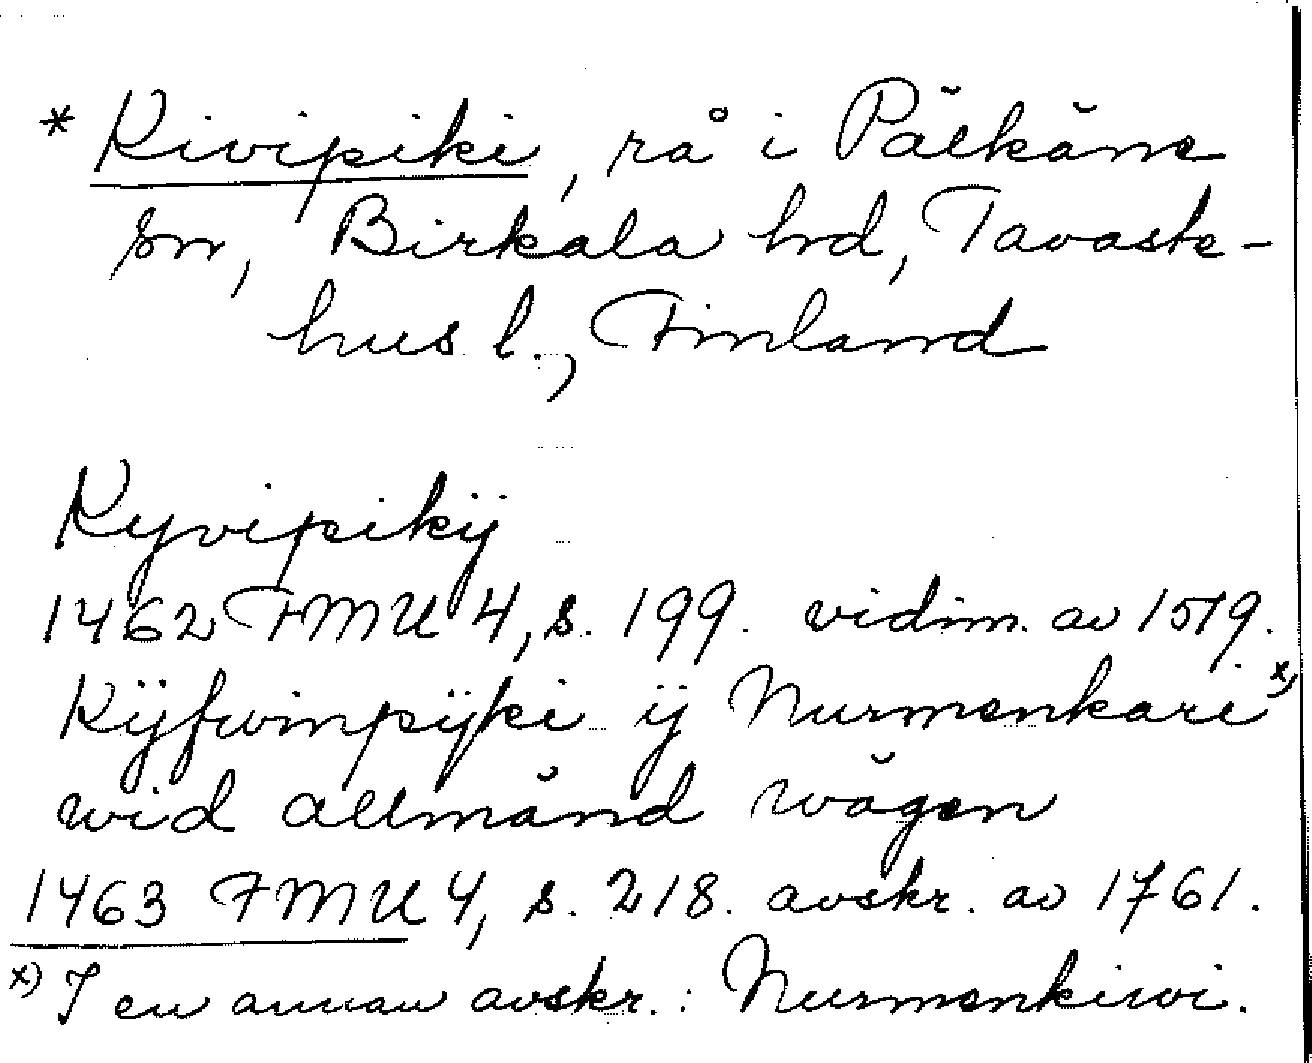 * Kivipiki, rå i Pälkäne
sn, Birkala hd, Tavaste-
hus l., Finland
Kyvipikÿ
1462 FMU 4, s. 199. vidim. av 1519.
Kÿfwinpÿki ÿ Nurmenkari x)
wid allmänd wägen
1463 FMU 4, s. 218. avskr. av 1761.
x) I en annan avskr.: Nurmenkiwi.